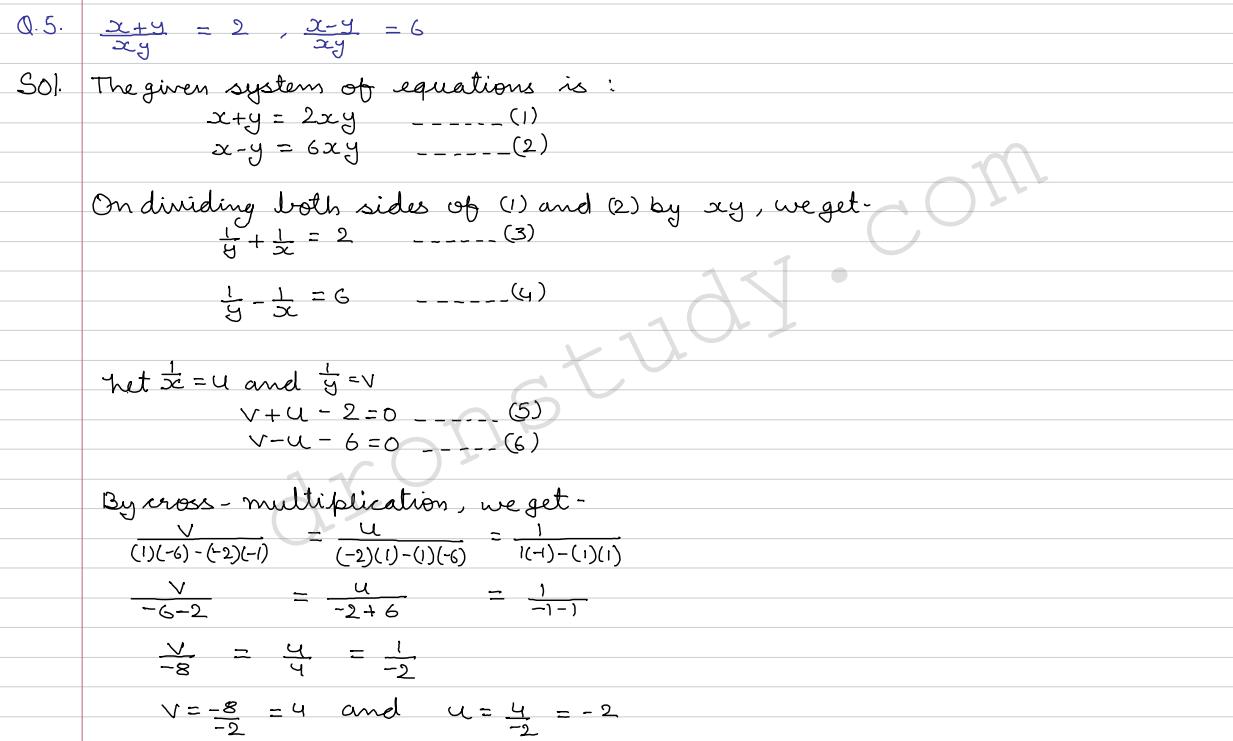 Q.5. x+y/xy = 2 , x-y/xy = 6
Sol. The given system of equations is :
x+y = 2xy ------(1)
x-y = 6xy ------(2)
On dividing both sides of (1) and (2) by xy, we get-
1/y + 1/x = 2 ------(3)
1/y - 1/x = 6 ------(4)
Let 1/x = u and 1/y = v
v+u-2=0 ------(5)
v-u-6=0 -----(6)
By cross-multiplication, we get-
v/(1)(-6)-(-2)(-1) = u/(-2)(1)-(1)(-6) = 1/1(-1)-(1)(1)
v/-6-2 = u/-2+6 = 1/-1-1
v/-8 = u/4 = 1/-2
v = -8/-2 = 4 and u = 4/-2 = -2
dronstudy.com